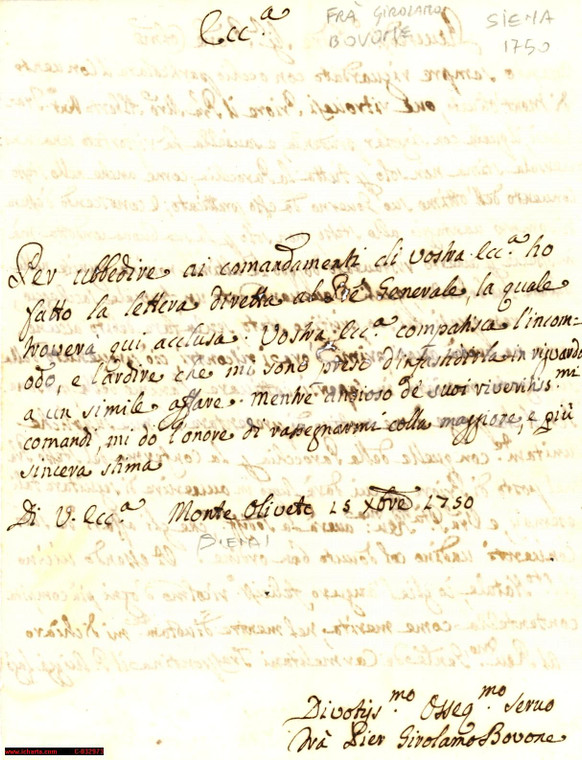 Ecc.ª
FRÀ GIROLAMO
BOVONE
SIENA
1750
Per ubbedire ai comandamenti di vostra Ecc.ª ho
fatto la lettera diretta al Pre Generale, la quale
troverà qui acclusa. Vostra Ecc.ª compatisca l'incom-
odo, e l'ardire che mi sono preso d'infastidirla in riguardo
a un simile affare. mentre ansioso de suoi riveritiss.mi
comandi, mi do l'onore di rassegnarmi colla maggiore, e più
sincera stima
Di V. Ecc.ª Monte Oliveto 15 Xbre 1750
SIENA
Divotiss.mo Osseq.mo Servo
Frà Pier Girolamo Bovone
www.icharta.com C-032971